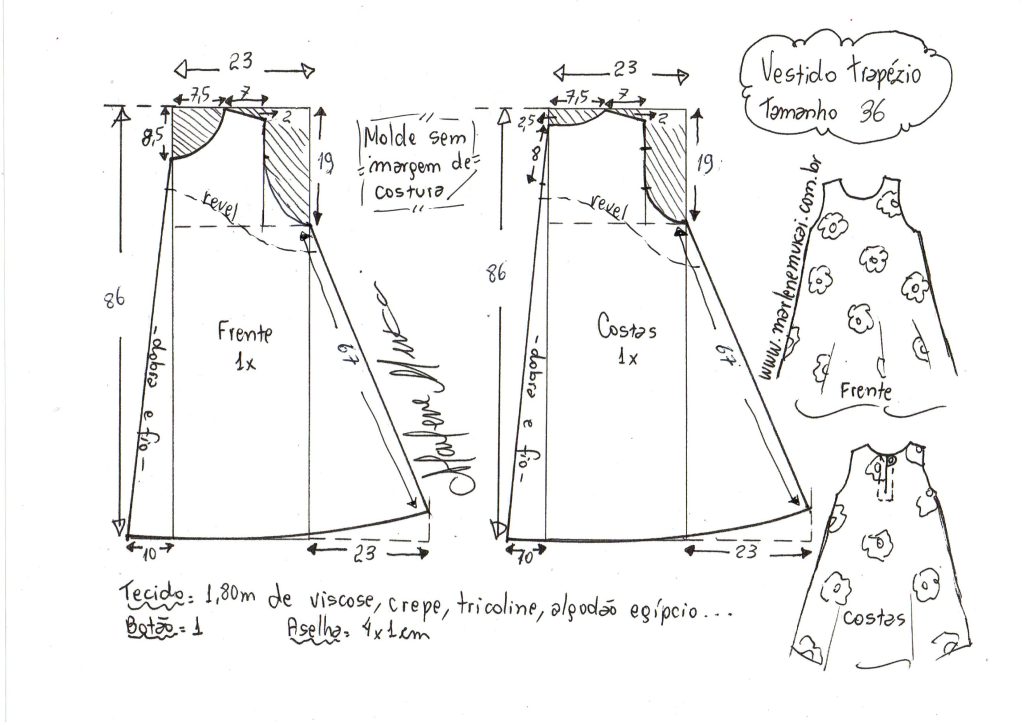 Vestido trapézio
Tamanho 36
23
7,5
7
2
8,5
19
revel
86
Frente
1x
67
-dobra e fio-
10
23
Molde sem
margem de
costura
Marlene Mukai
23
7,5
7
2
2,5
8
19
revel
86
Costas
1x
67
-dobra e fio-
10
23
www.marlenemukai.com.br
Frente
Costas
Tecido= 1,80m de viscose, crepe, tricoline, algodão egípcio...
Botão=1
Aselha= 4x1cm